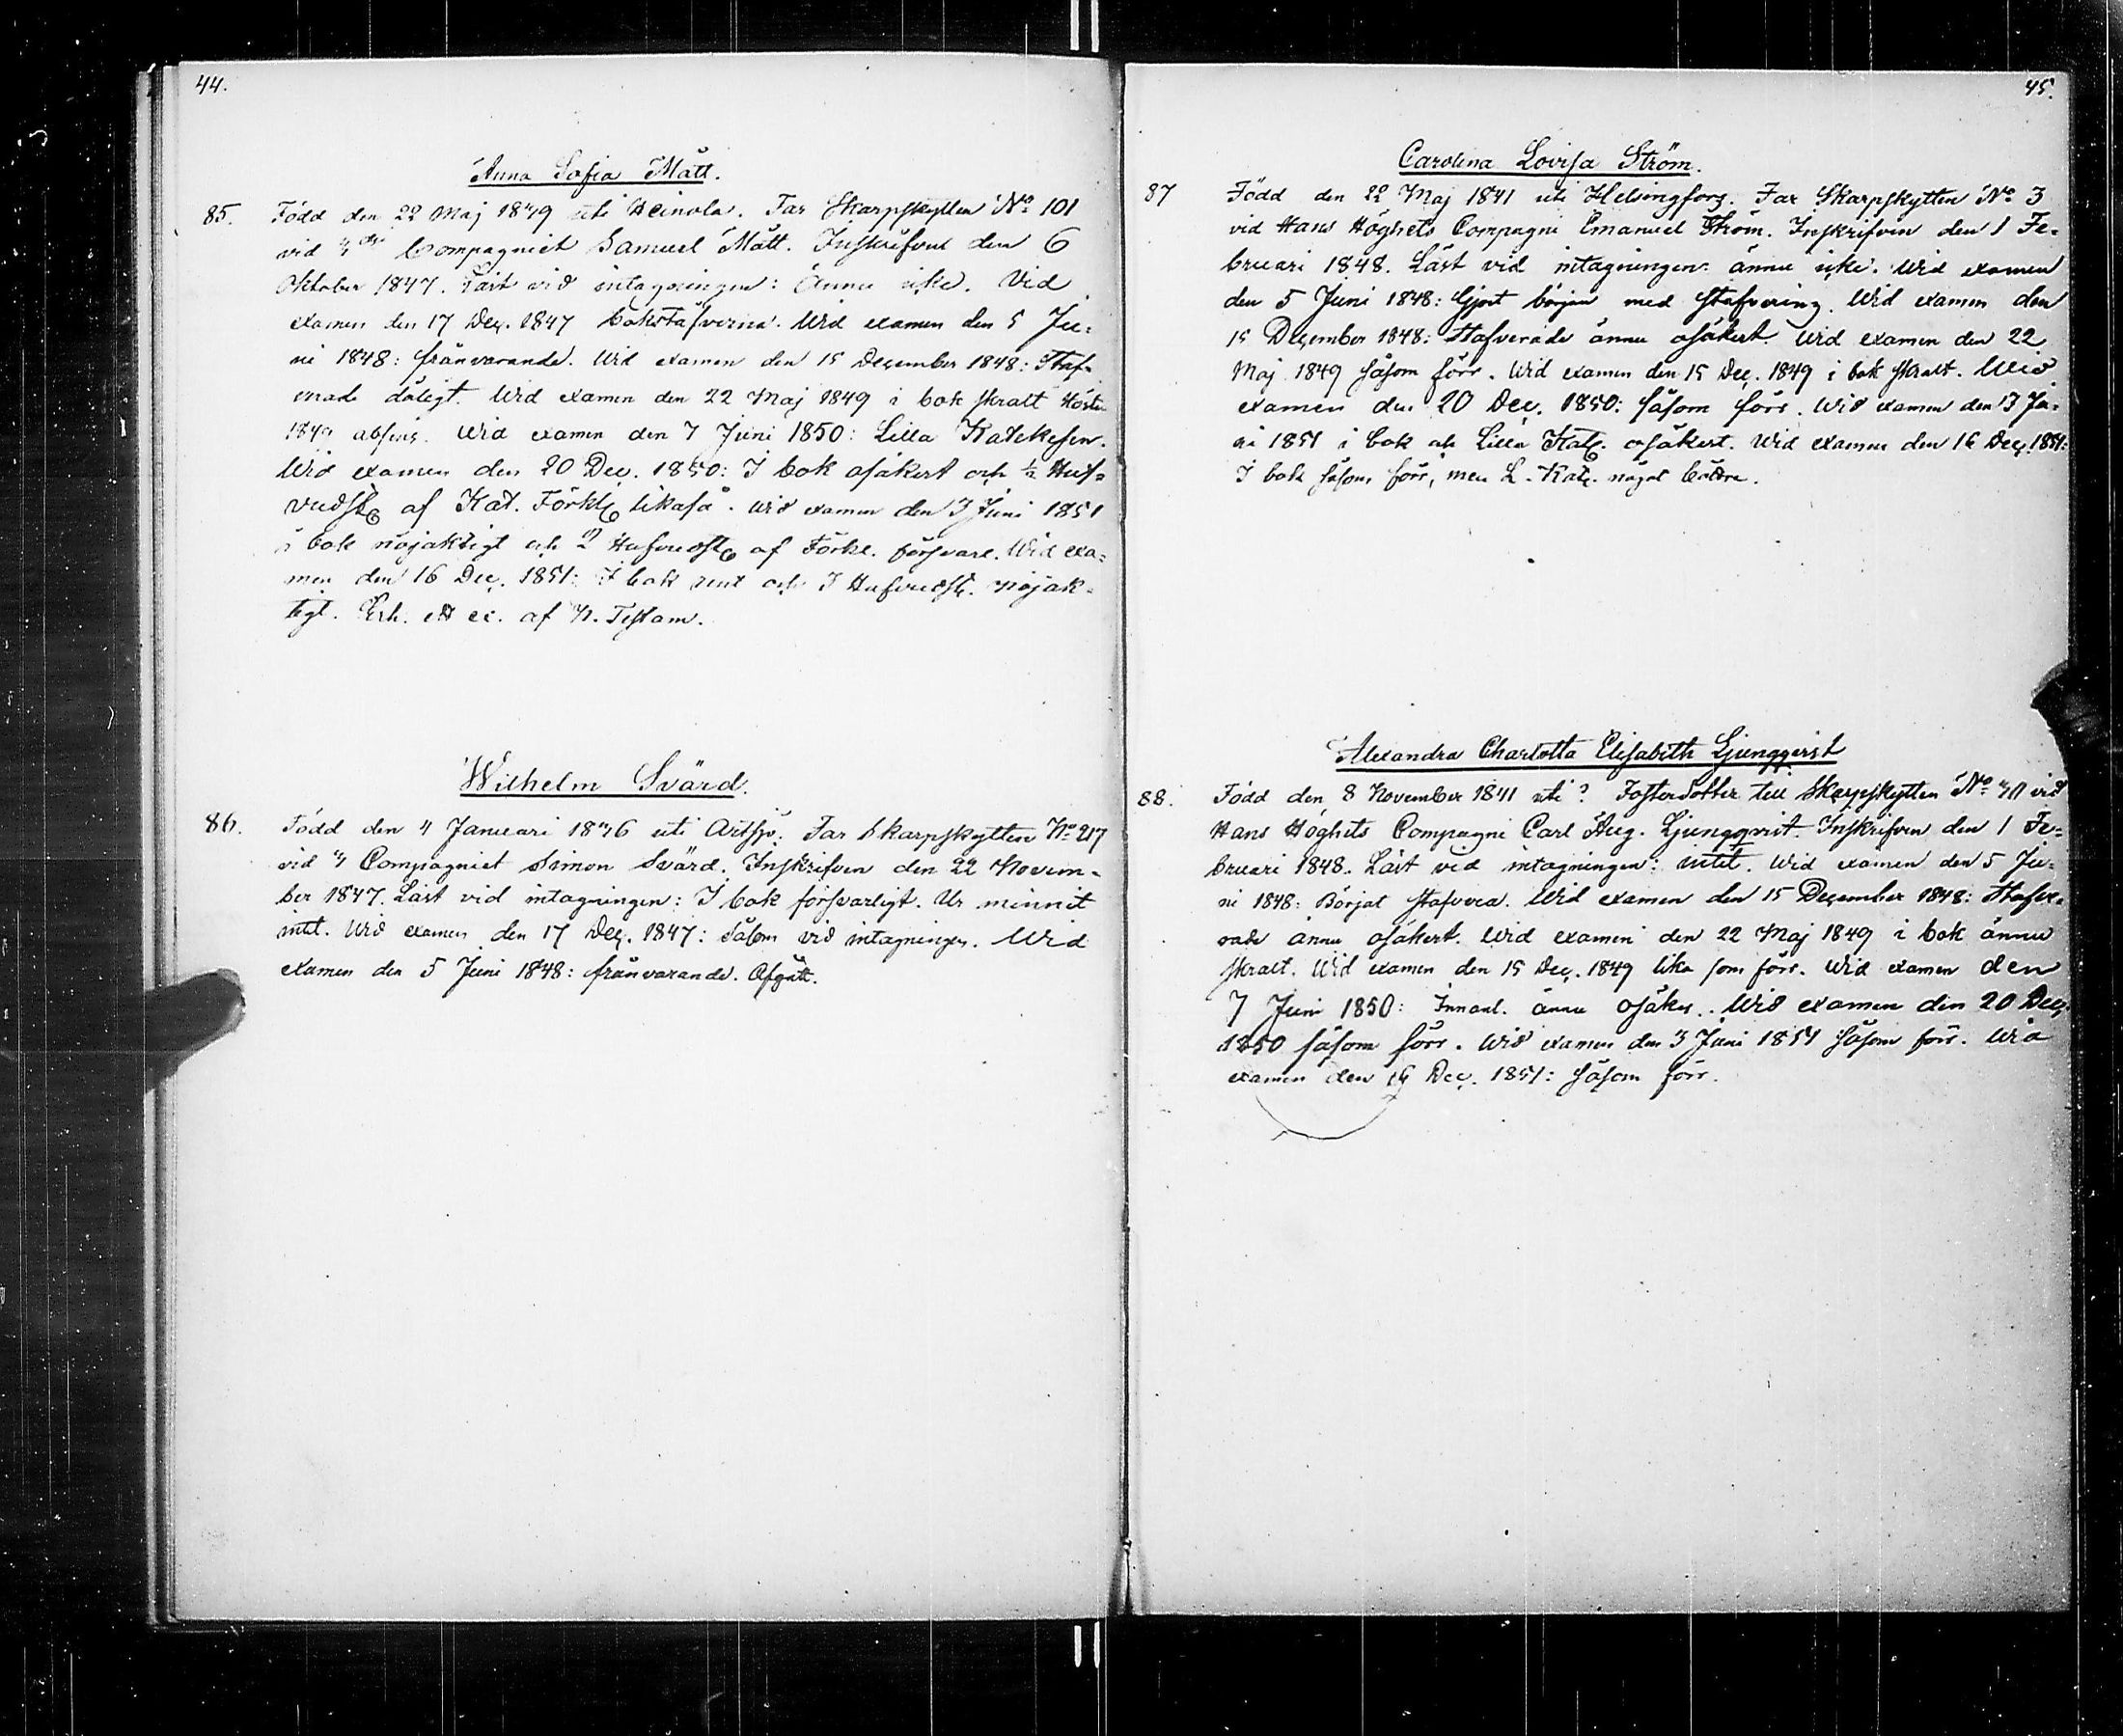 44.
Anna Sofia Mått.
85. Född den 22 Maj 1839 uti Heinola. Far Skarpskytten No 101
vid 4de Compagniet Samuel Mått. Inskrifven den 6
Oktober 1847. Läst vid intagningen: Ännu icke. Vid
examen den 17 Dec. 1847 bokstäfverna. Wid examen den 5 Ju-
ni 1848: frånvarande. Wid examen den 15 December 1848: Staf-
vade dåligt. Wid examen den 22 Maj 1849 i bok skralt Hösten
1849 absens. Wid examen den 7 Juni 1850: Lilla Katekesen.
Wid examen den 20 Dec. 1850: I bok osäkert och ½ Huf-
vudst. af Kat. Förkl. likaså. Wid examen den 3 Juni 1851
i bok nöjaktigt och 2 Hufvudst. af Förkl. försvarl. Wid exa-
men den 16 Dec. 1851: I bok rent och 3 Hufvudst. nöjak-
tigt. Erh. ett ex. af N. Testam.
Wilhelm Svärd.
86. Född den 4 Januari 1836 uti Artsjö. Far Skarpskytten No 217
vid 4 Compagniet Simon Svärd. Inskrifven den 22 Novem-
ber 1847. Läst vid intagningen: I bok försvarligt. Ur minnit
intet. Wid examen den 17 Dec. 1847: Såsom vid intagningen. Wid
examen den 5 Juni 1848: frånvarande. Afgått.
45.
Carolina Lovisa Ström.
87 Född den 22 Maj 1841 uti Helsingfors. Far Skarpskytten No 3
vid Hans Höghets Compagni Emanuel Ström. Inskrifven den 1 Fe-
bruari 1848. Läst vid intagningen: ännu icke. Wid examen
den 5 Juni 1848: Gjort början med stafvering. Wid examen den
15 December 1848: Stafverade ännu osäkert. Wid examen den 22
Maj 1849 såsom förr. Wid examen den 15 Dec. 1849 i bok skralt. Wid
examen den 20 Dec. 1850: såsom förr. Wid examen den 3 Ju-
ni 1851 i bok och Lilla Katec. osäkert. Wid examen den 16 Dec. 1851:
I bok såsom förr, men L. Katec. något bättre.
Alexandra Charlotta Elisabeth Ljungqvist
88. Född den 8 November 1841 uti? Fosterdotter till Skarpskytten No vid
Hans Höghets Compagni Carl Aug. Ljungqvist. Inskrifven den 1 Fe-
bruari 1848. Läst vid intagningen: intet. Wid examen den 5 Ju-
ni 1848: Börjat stafvera. Wid examen den 15 December 1848: Stafve-
rade ännu osäkert. Wid examen den 22 Maj 1849 i bok ännu
skralt. Wid examen den 15 Dec. 1849 lika som förr. Wid examen den
7 Juni 1850: Innanl. ännu osäker. Wid examen den 20 Dec.
1850 såsom förr. Wid examen den 3 Juni 1851 såsom förr. Wid
examen den 16 Dec. 1851: såsom förr.